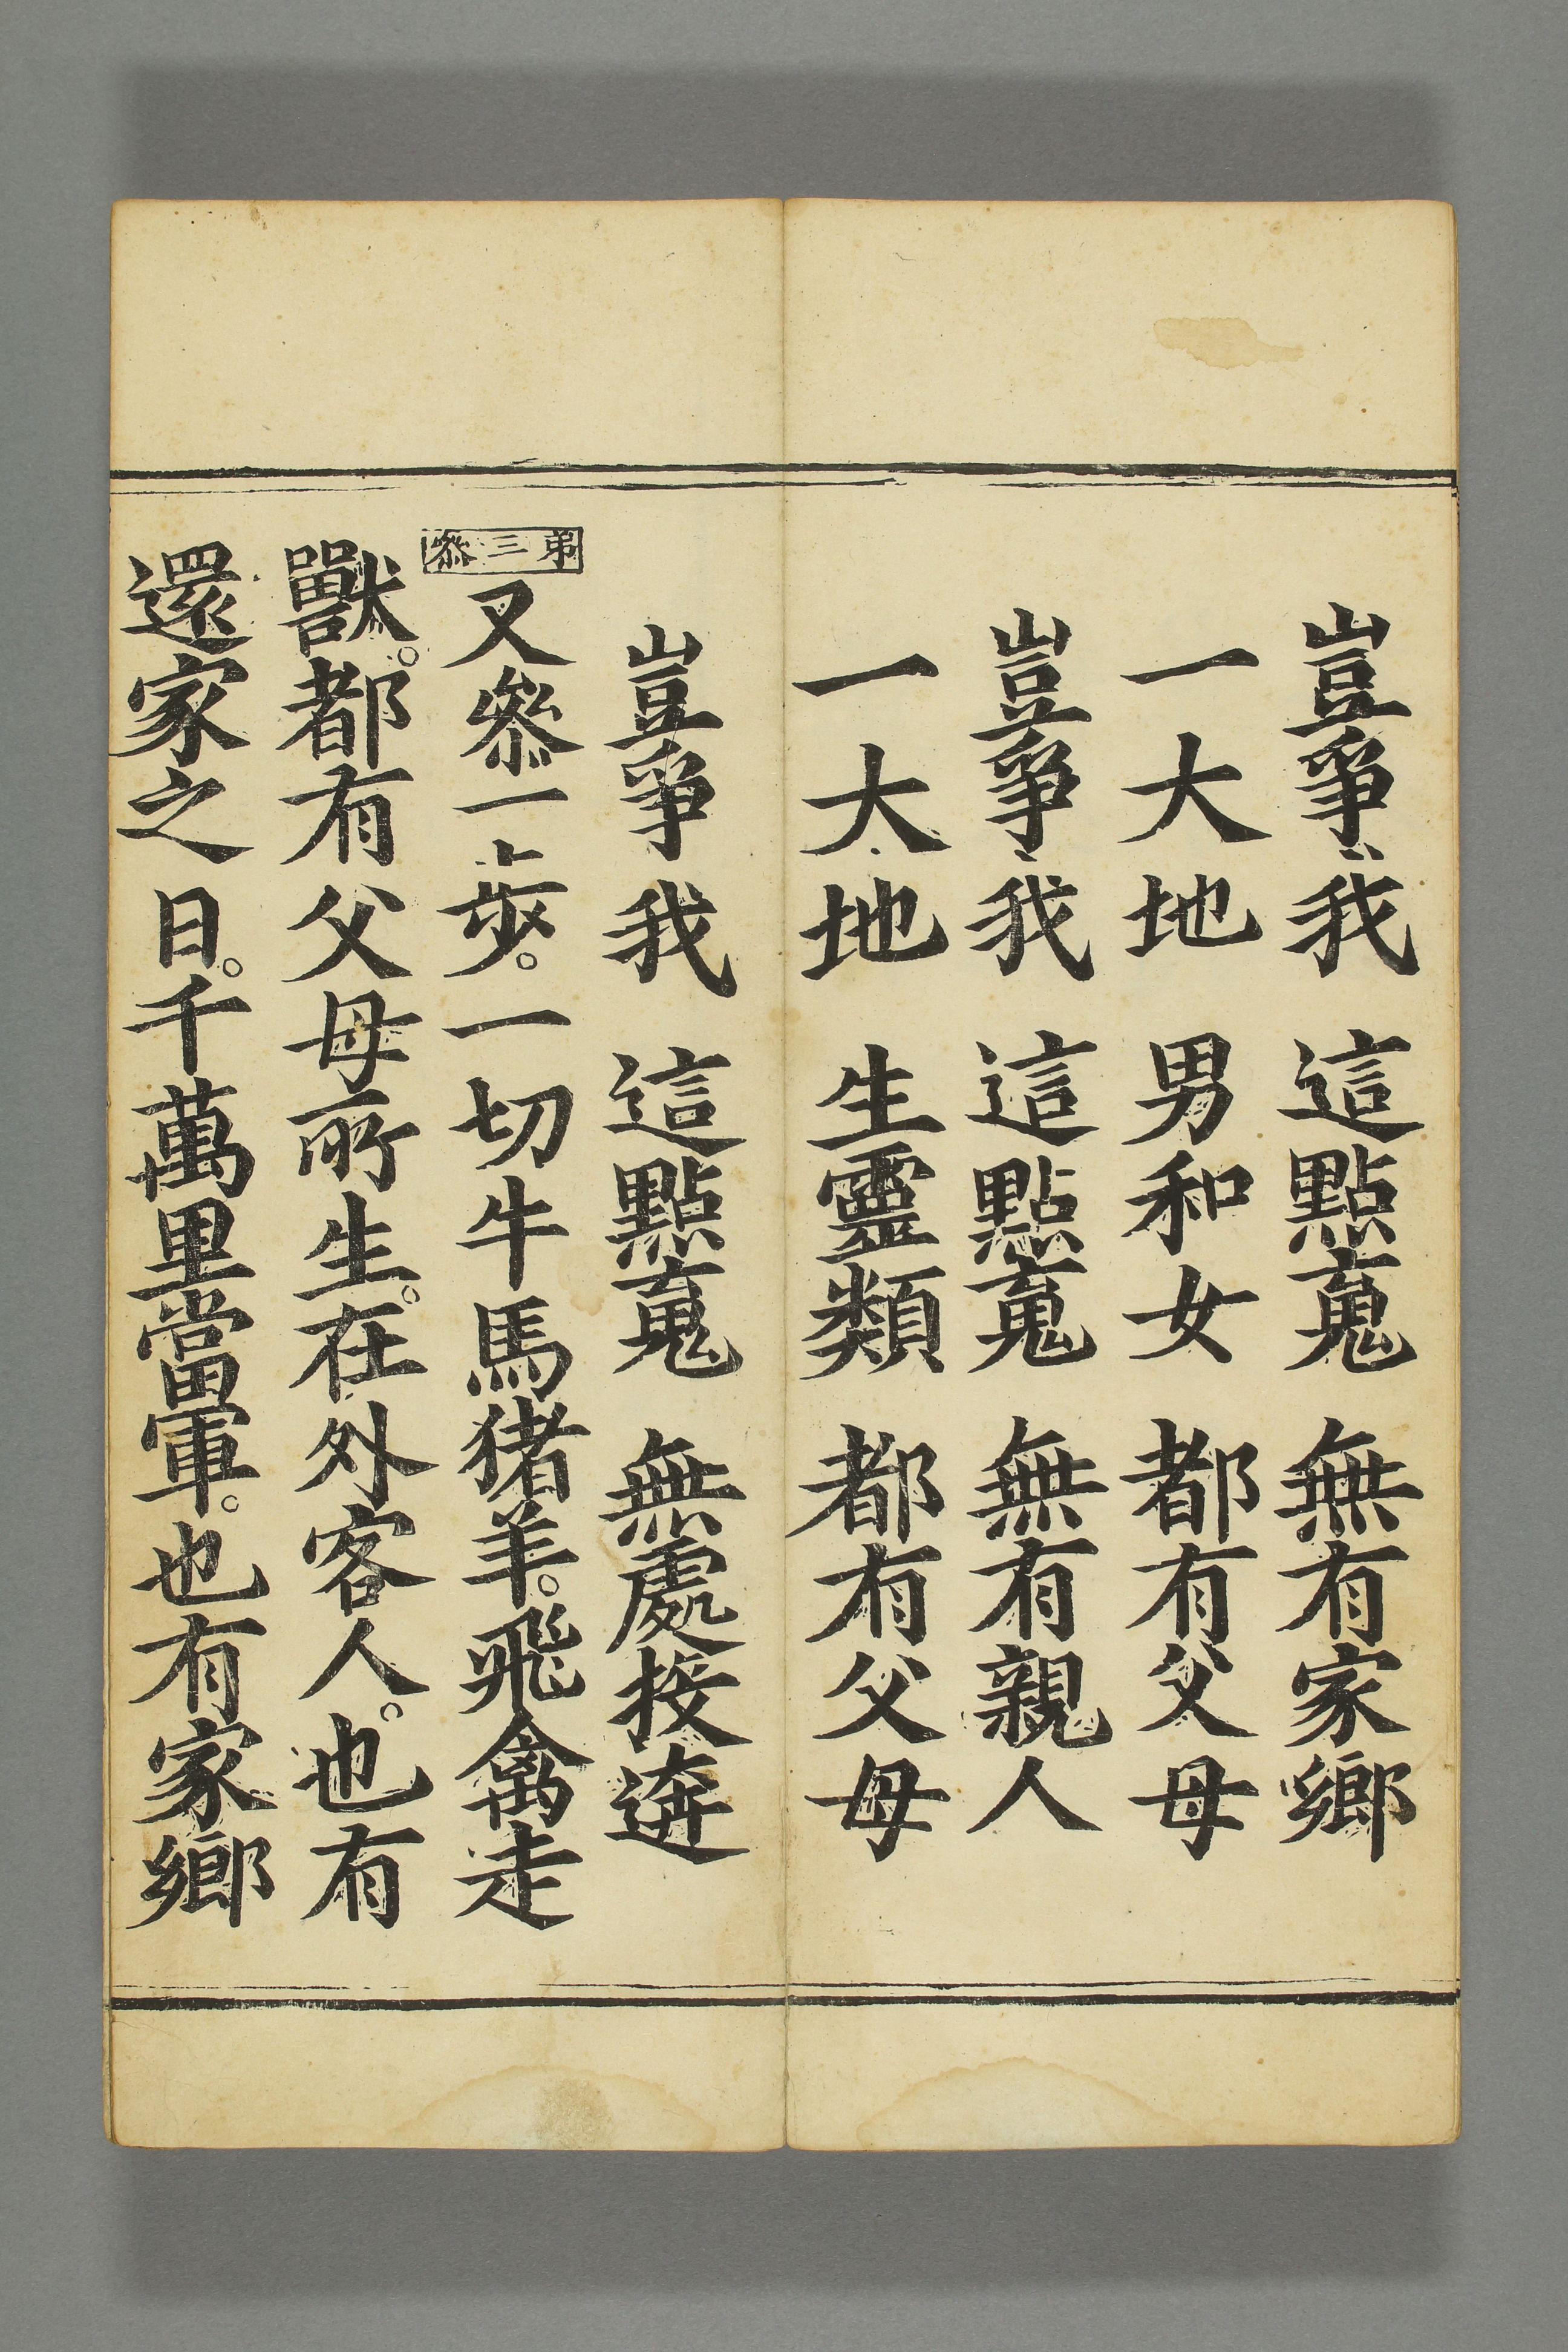 豈爭我　這點䰟　無有家鄉
一大地　男和女　都有父母
豈爭我　這點䰟　無有親人
一大地　生靈類　都有父母
豈爭我　這點䰟　無處接迯
弟三叅
又叅一步。一切牛馬猪羊。飛禽走
獸。都有父母所生。在外客人。也有
還家之日。千萬里當軍。也有家鄉